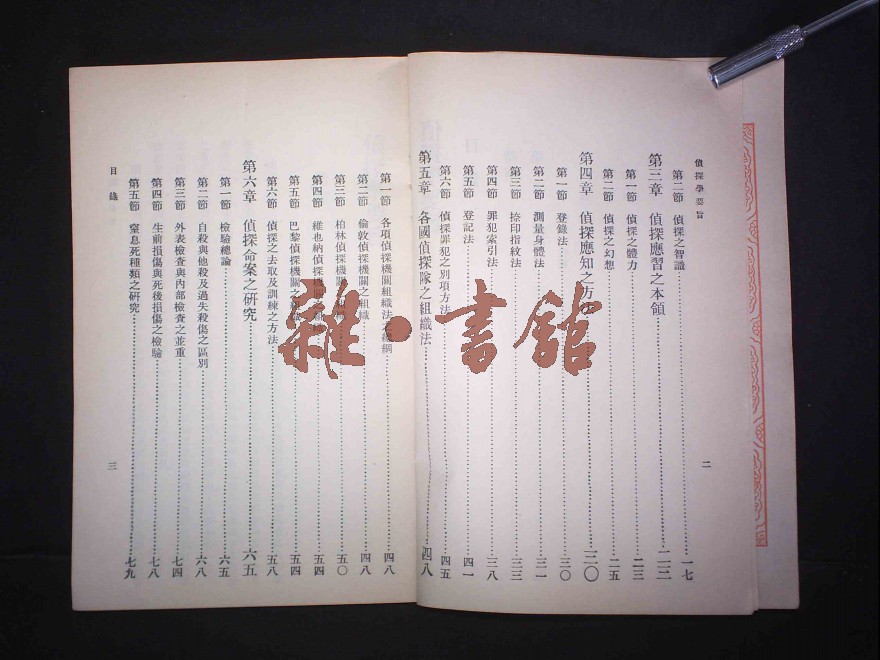 偵探學要旨
第二節 偵探之智識 一七
第三章 偵探應習之本領 二二
第一節 偵探之體力 二三
第二節 偵探之幻想 二五
第四章 偵探應知之方 三〇
第一節 登錄法 三〇
第二節 測量身體法 三一
第三節 捺印指紋法 三三
第四節 罪犯索引法 三八
第五節 登記法 四一
第六節 偵探罪犯之別項方 四五
第五章 各國偵探隊之組織法 四八
二
第一節 各項偵探機關組織法 綱 四八
第二節 倫敦偵探機關之組織 四八
第三節 柏林偵探機關 五〇
第四節 維也納偵探機關 五四
第五節 巴黎偵探機關之 五四
第六節 偵探之去取及訓練之方法 五八
第六章 偵探命案之研究 六五
第一節 檢驗總論 六五
第二節 自殺與他殺及過失殺傷之區別 六八
第三節 外表檢查與內部檢查之並重 七四
第四節 生前損傷與死後損傷之檢驗 七八
第五節 窒息死種類之研究 七九
目錄
三
雜·書館